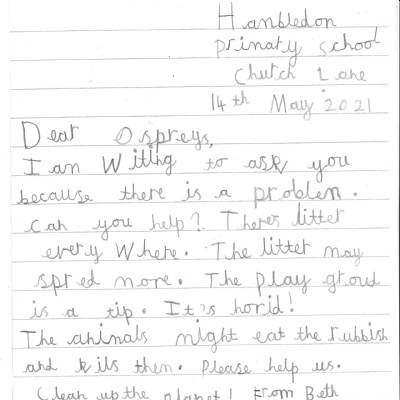 Hambledon
primary school
Church Lane
14th May 2021
Dear Ospreys,
I am Witing to ask you
because there is a problem.
Can you help? Theres litter
every Where. The litter may
spred more. The play groud
is a tip. It's horid!
The animals might eat the rubbish
and kils them. Please help us.
Clean up the planet! From Beth